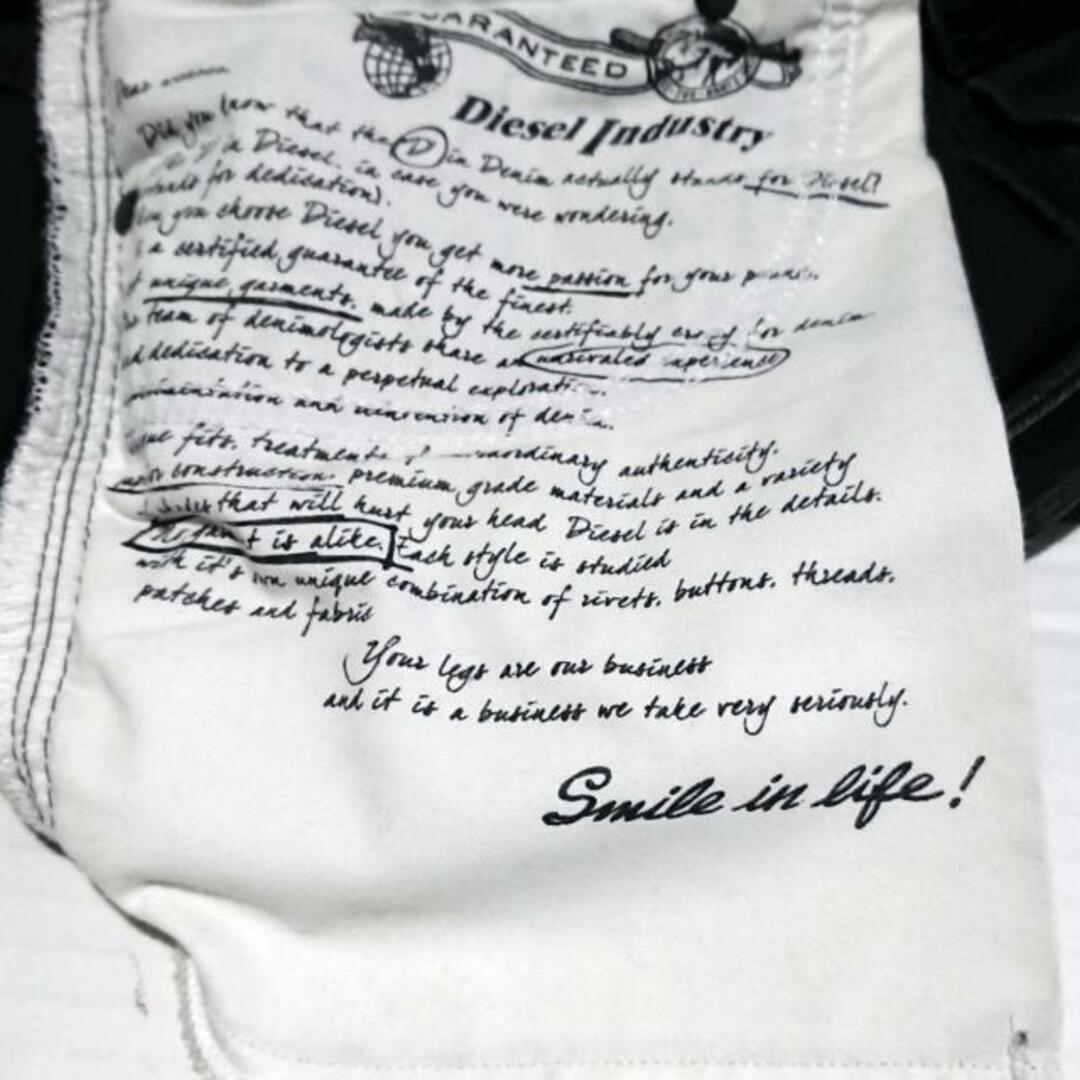 GUARANTEED
Diesel Industry
Did you know that the D in Denim actually stands for Diesel?
a Diesel. in case you were wondering.
for dedication).
you choose Diesel you get more passion for your
a certified guarantee of the finest.
unique garments. made by the certifiably crazy for denim
team of denimologists share an unrivaled experience
dedication to a perpetual exploration.
and of denim.
fits. treatments of authenticity.
construction. premium grade materials and a variety
that will hurt your head Diesel is in the details.
is alike. Each style is studied
with it's own unique combination of rivets. buttons. threads.
patches and fabric
Your legs are our business
and it is a business we take very seriously.
Smile in life!